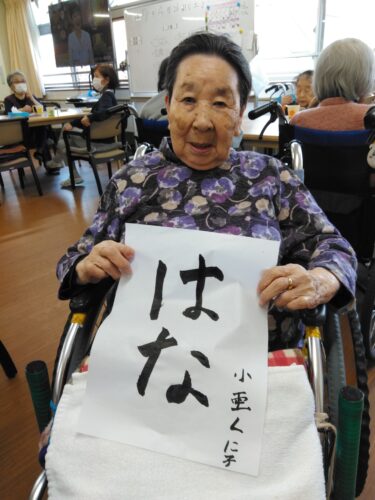 はな
小亜くに子